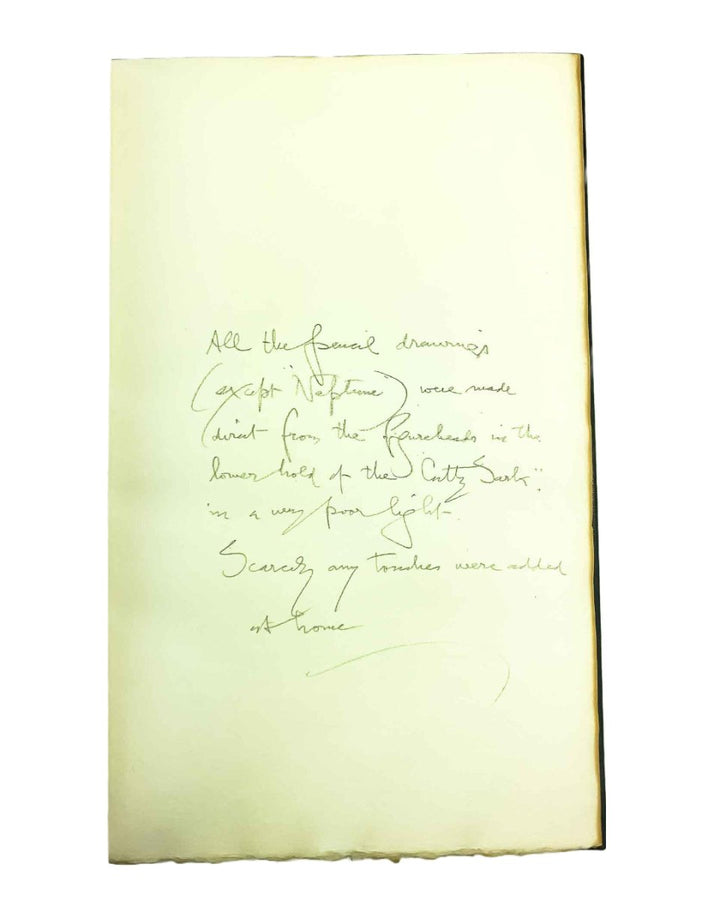 All the pencil drawings
(except "Neptune") were made
direct from the figureheads in the
lower hold of the "Cutty Sark".
in a very poor light.
Scarcely any touches were added
at home